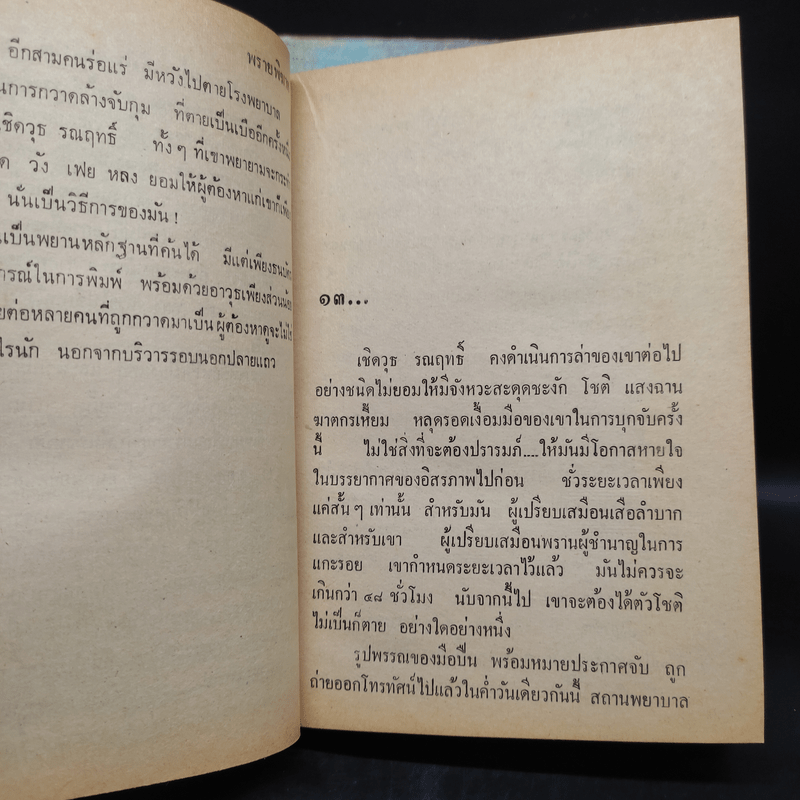 พรายพิฆาต
อีกสามคนร่อแร่ มีหวังไปตายโรงพยาบาล
นการกวาดล้างจับกุม ที่ตายเป็นเบืออีกครั้งหนึ่ง
เชิดวุธ รณฤทธิ์ ทั้ง ๆ ที่เขาพยายามจะกระทำ
ด วัง เฟย หลง ยอมให้ผู้ต้องหาแก่เขาก็เพียง
นั่นเป็นวิธีการของมัน !
เป็นพยานหลักฐานที่ค้นได้ มีแต่เพียงธนบัตร
กรณ์ในการพิมพ์ พร้อมด้วยอาวุธเพียงส่วนน้อย
ยต่อหลายคนที่ถูกกวาดมาเป็นผู้ต้องหาดูจะไม่ได้
ไรนัก นอกจากบริวารรอบนอกปลายแถว
๑๓...
เชิดวุธ รณฤทธิ์ คงดำเนินการล่าของเขาต่อไป
อย่างชนิดไม่ยอมให้มีจังหวะสะดุดชะงัก โชติ แสงฉาน
ฆาตกรเหี้ยม หลุดรอดเงื้อมมือของเขาในการบุกจับครั้ง
นี้ ไม่ใช่สิ่งที่จะต้องปรารมภ์....ให้มันมีโอกาสหายใจ
ในบรรยากาศของอิสรภาพไปก่อน ชั่วระยะเวลาเพียง
แค่สั้น ๆ เท่านั้น สำหรับมัน ผู้เปรียบเสมือนเสือลำบาก
และสำหรับเขา ผู้เปรียบเสมือนพรานผู้ชำนาญในการ
แกะรอย เขากำหนดระยะเวลาไว้แล้ว มันไม่ควรจะ
เกินกว่า ๔๘ ชั่วโมง นับจากนี้ไป เขาจะต้องได้ตัวโชติ
ไม่เป็นก็ตาย อย่างใดอย่างหนึ่ง
รูปพรรณของมือปืน พร้อมหมายประกาศจับ ถูก
ถ่ายออกโทรทัศน์ไปแล้วในค่ำวันเดียวกันนี้ สถานพยาบาล